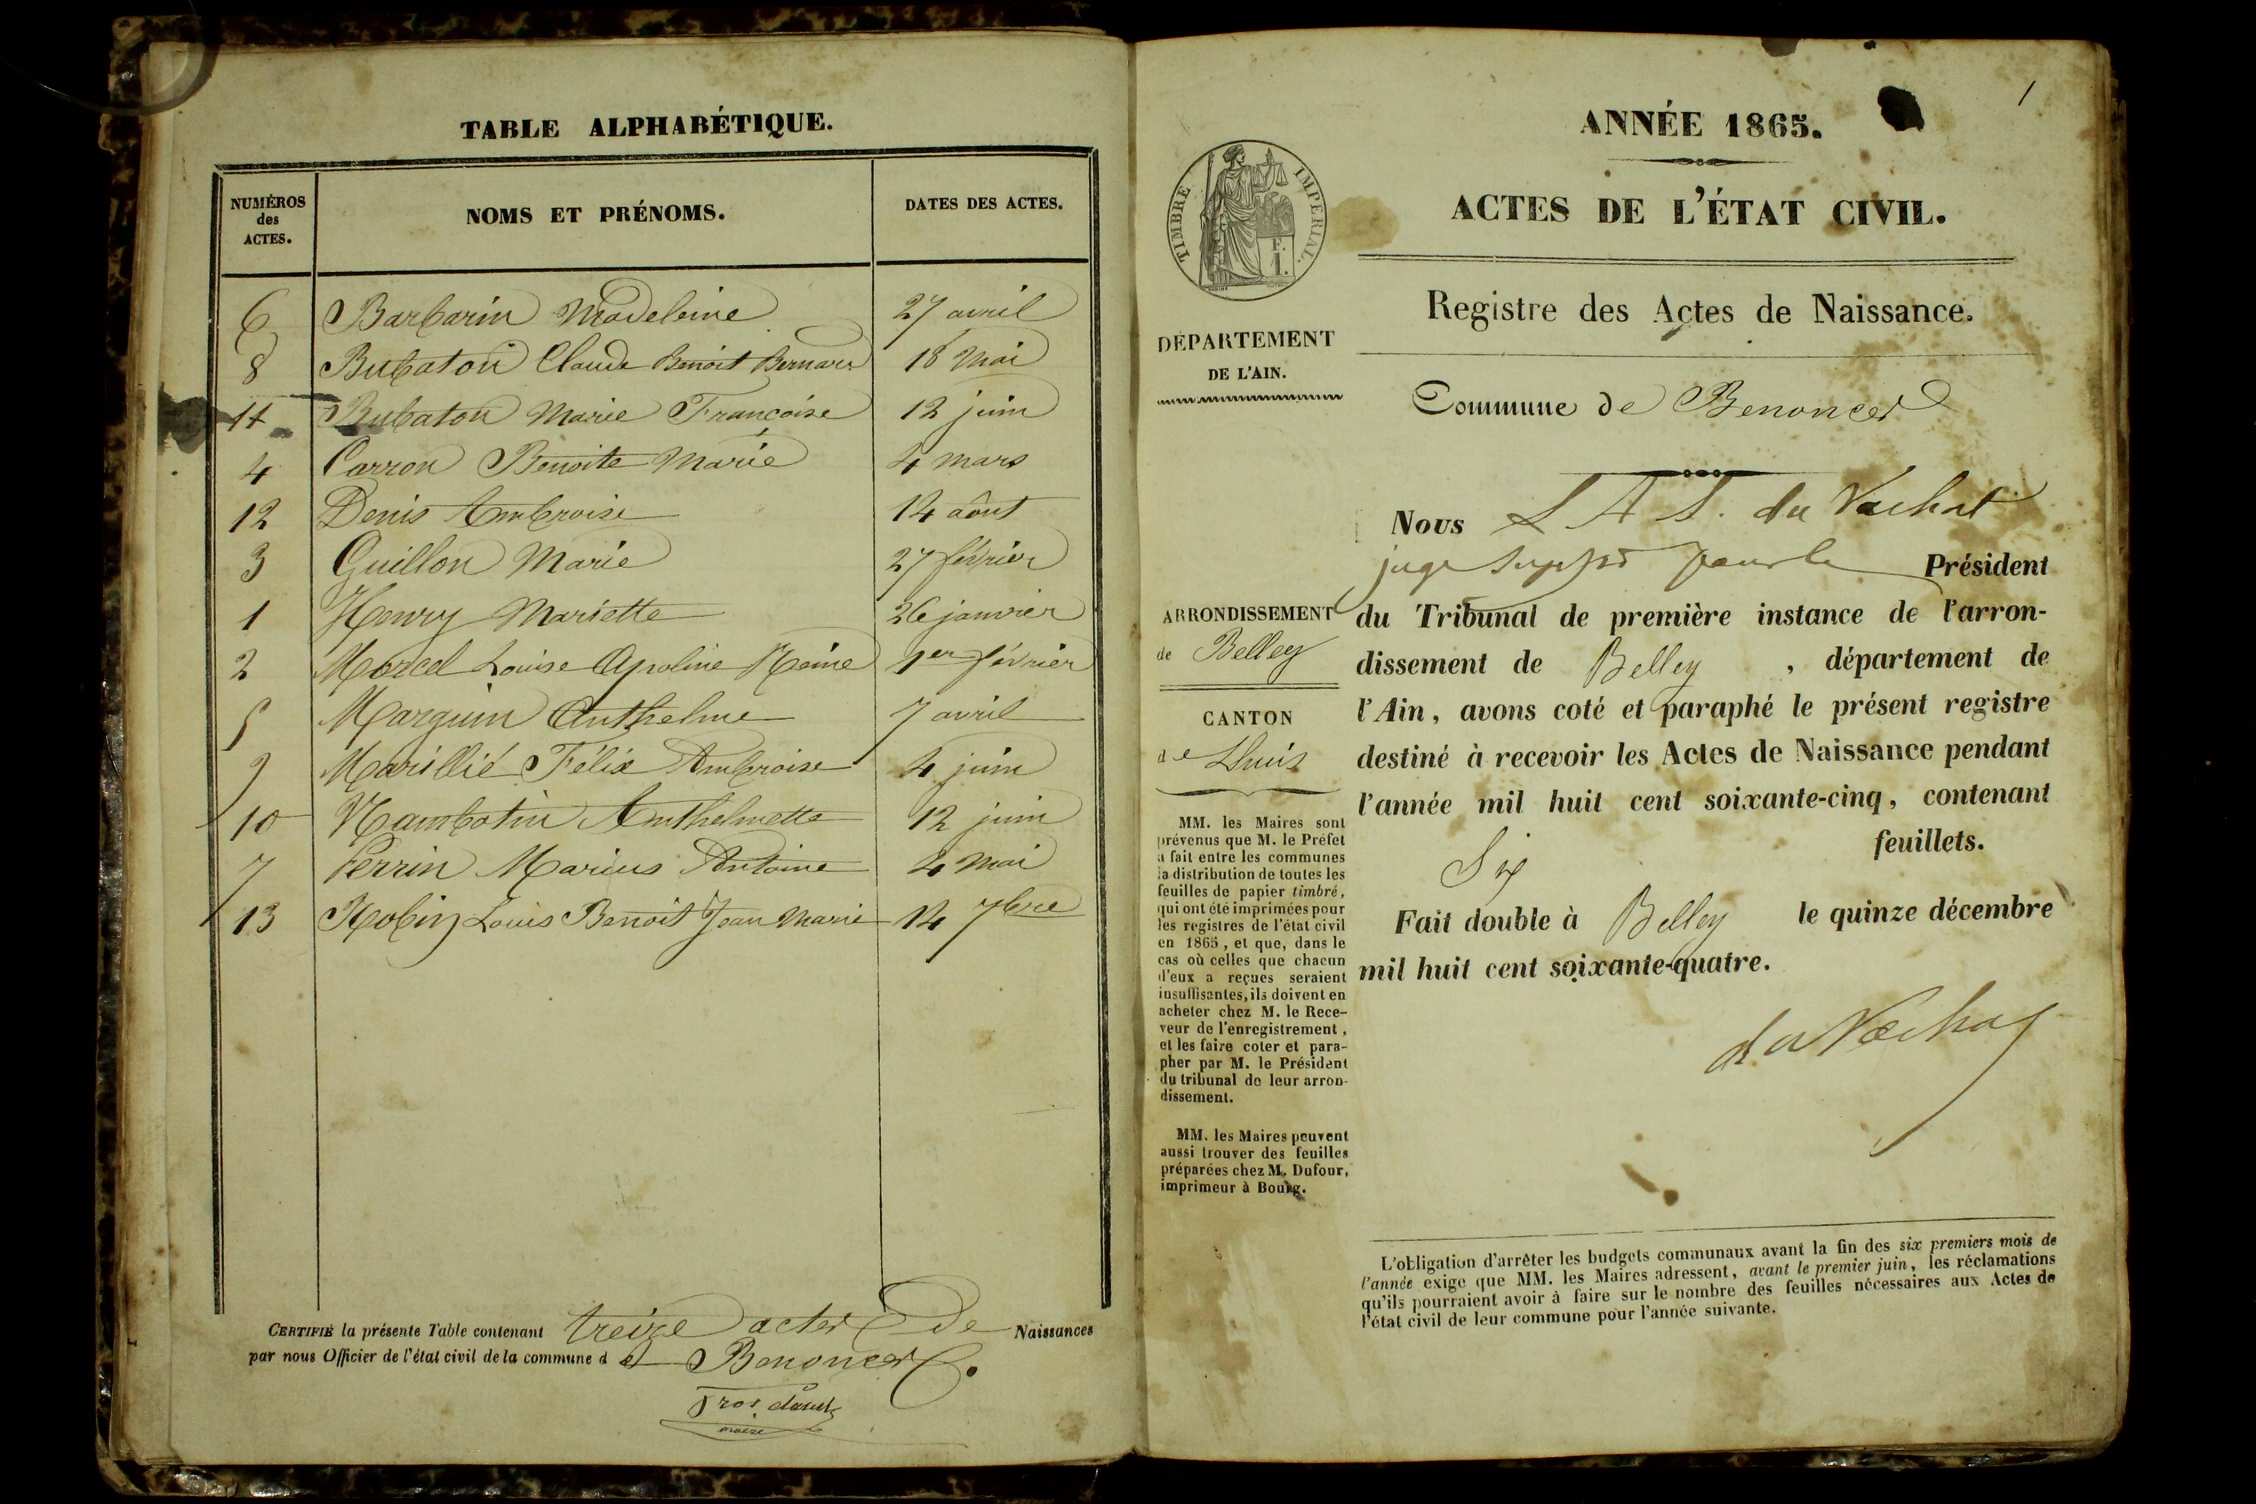 TABLE ALPHABÉTIQUE.
NUMÉROS des ACTES. NOMS ET PRÉNOMS. DATES DES ACTES.
6 Barbarin Madeleine 27 avril
8 Bubaton Claude Benoit Bernard 18 Mai
11 Bubaton Marie Françoise 12 juin
4 Carron Benoite Marie 4 mars
12 Denis Ambroise 14 août
3 Guillon Marie 27 février
1 Henry Mariette 26 janvier
2 Marcel Louise Apoline Reine 1er février
5 Marguin Anthelme 7 avril
9 Marillié Félix Ambroise 4 juin
10 Nambotin Anthelmette 12 juin
7 Perrin Marius Antoine 4 Mai
13 Robin Louis Benoit Jean Marie 14 7bre
CERTIFIÉ la présente Table contenant treize actes de Naissances
par nous Officier de l'état civil de la commune de Benonces.
maire
1
ANNÉE 1865.
ACTES DE L'ÉTAT CIVIL.
TIMBRE IMPÉRIAL.
F. I.
Registre des Actes de Naissance.
DÉPARTEMENT
DE L'AIN.
Commune de Benonces
ARRONDISSEMENT
de Belley
CANTON
de Lhuis
MM. les Maires sont
prévenus que M. le Préfet
a fait entre les communes
la distribution de toutes les
feuilles de papier timbré,
qui ont été imprimées pour
les registres de l'état civil
en 1865, et que, dans le
cas où celles que chacun
d'eux a reçues seraient
insuffisantes, ils doivent en
acheter chez M. le Rece-
veur de l'enregistrement,
et les faire coter et para-
pher par M. le Président
du tribunal de leur arron-
dissement.
MM. les Maires peuvent
aussi trouver des feuilles
préparées chez M. Dufour,
imprimeur à Bourg.
Nous L A S. du Vachat
juge pour le Président
du Tribunal de première instance de l'arron-
dissement de Belley, département de
l'Ain, avons coté et paraphé le présent registre
destiné à recevoir les Actes de Naissance pendant
l'année mil huit cent soixante-cinq, contenant
Six feuillets.
Fait double à Belley le quinze décembre
mil huit cent soixante-quatre.
du Vachat
L'obligation d'arrêter les budgets communaux avant la fin des six premiers mois de
l'année exige que MM. les Maires adressent, avant le premier juin, les réclamations
qu'ils pourraient avoir à faire sur le nombre des feuilles nécessaires aux Actes de
l'état civil de leur commune pour l'année suivante.